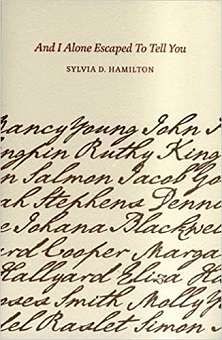 And I Alone Escaped To Tell You
SYLVIA D. HAMILTON
Nancy Young John
Ruthy King
Salmon Jacob
Stephens
Johana Blackwel
Cooper Marga
Hallyard Eliza Ha
Moses Smith Molly
Raslet Simon